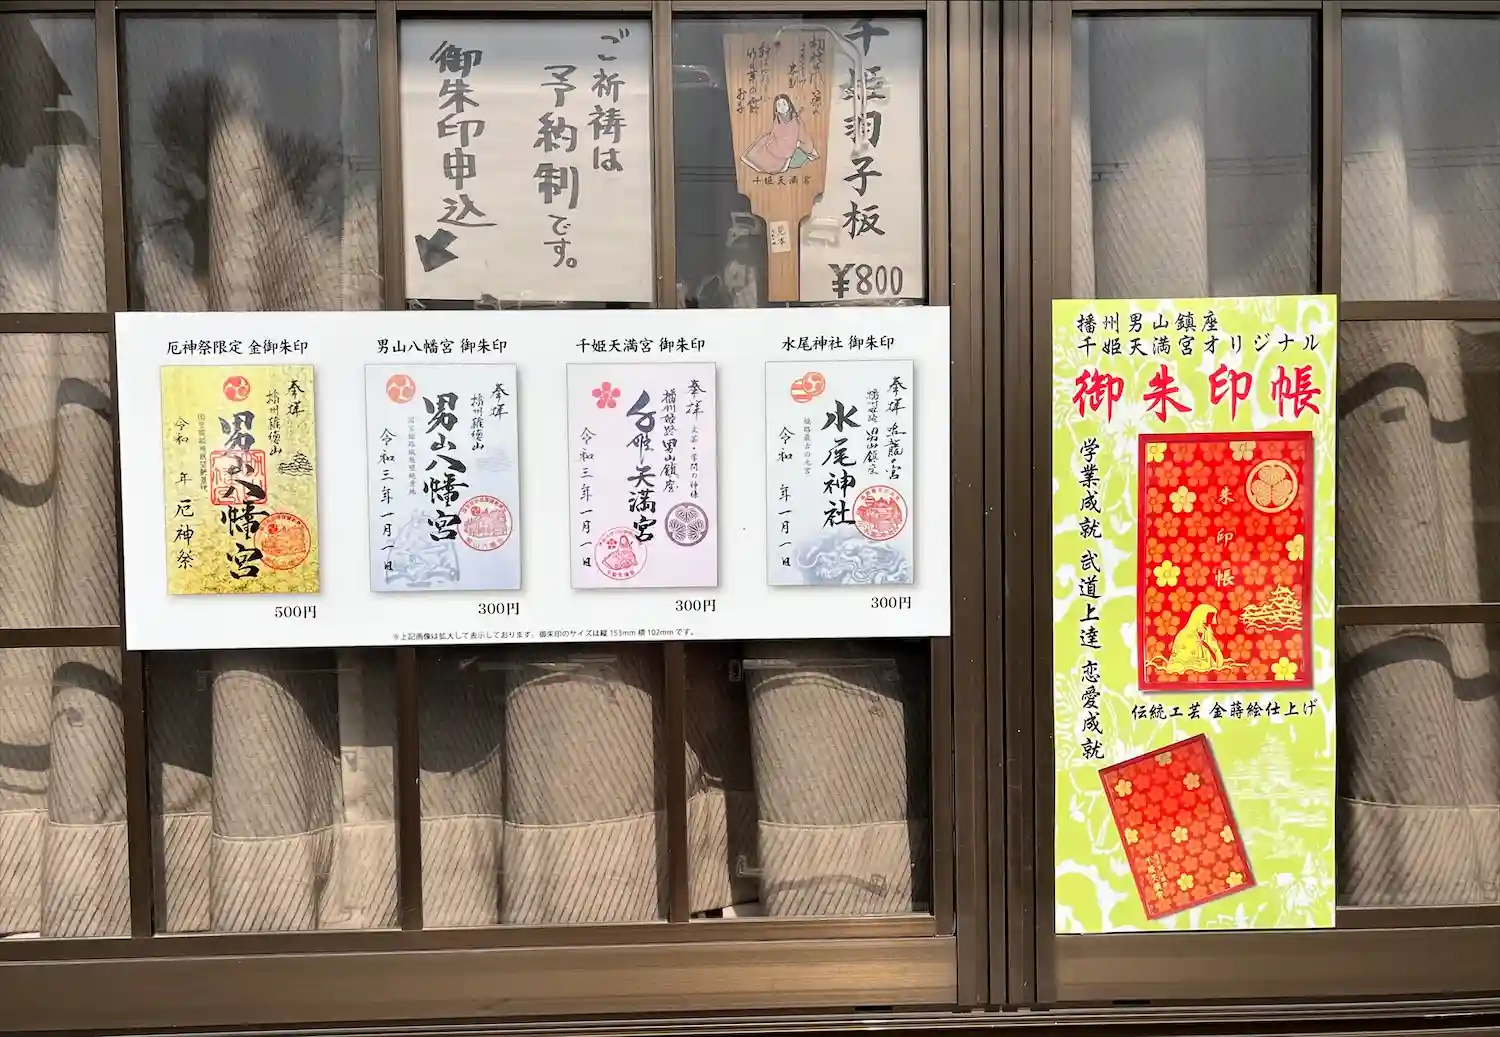 ご祈祷は
予約制です。
御朱印申込
千姫羽子板
¥800
千姫天満宮
見本
厄神祭限定 金御朱印
奉拝
播州薩埵山
男山八幡宮
令和 年 厄神祭
500円
男山八幡宮 御朱印
奉拝
男山八幡宮
令和三年一月一日
300円
千姫天満宮 御朱印
奉拝
播州姫路男山鎮座
千姫天満宮
令和三年一月一日
300円
水尾神社 御朱印
奉拝
水尾神社
令和 年一月一日
300円
※上記画像は拡大して表示しております。御朱印のサイズは縦 153mm 横 102mm です。
播州男山鎮座
千姫天満宮オリジナル
御朱印帳
学業成就 武道上達 恋愛成就
朱印帳
伝統工芸 金蒔絵仕上げ